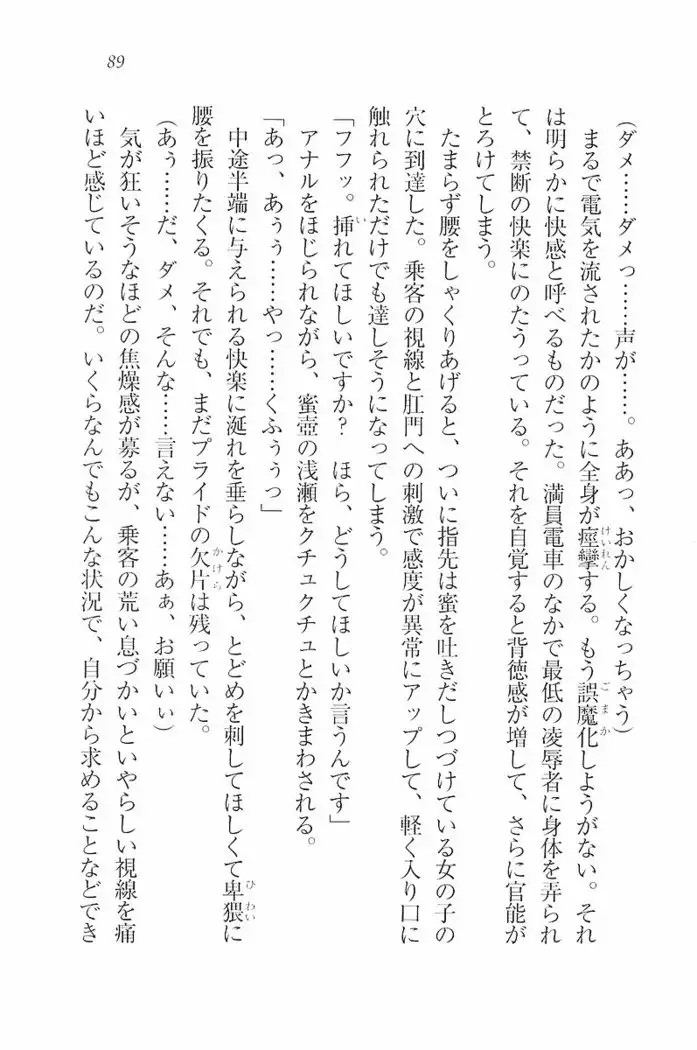 89
(ダメ……ダメっ……声が……。ああっ、おかしくなっちゃう)
まるで電気を流されたかのように全身が痙攣する。もう誤魔化しようがない。それ
は明らかに快感と呼べるものだった。満員電車のなかで最低の凌辱者に身体を弄られ
て、禁断の快楽にのたうっている。それを自覚すると背徳感が増して、さらに官能が
とろけてしまう。
たまらず腰をしゃくりあげると、ついに指先は蜜を吐きだしつづけている女の子の
穴に到達した。乗客の視線と肛門への刺激で感度が異常にアップして、軽く入り口に
触れられただけでも達しそうになってしまう。
「フフッ。挿れてほしいですか? ほら、どうしてほしいか言うんです」
アナルをほじられながら、蜜壺の浅瀬をクチュクチュとかきまわされる。
「あっ、あぅぅ……やっ……くふぅぅっ」
中途半端に与えられる快楽に涎れを垂らしながら、とどめを刺してほしくて卑猥に
腰を振りたくる。それでも、まだプライドの欠片は残っていた。
(あぅ……だ、ダメ、そんな……言えない……あぁ、お願いぃ)
気が狂いそうなほどの焦燥感が募るが、乗客の荒い息づかいといやらしい視線を痛
いほど感じているのだ。いくらなんでもこんな状況で、自分から求めることなどでき